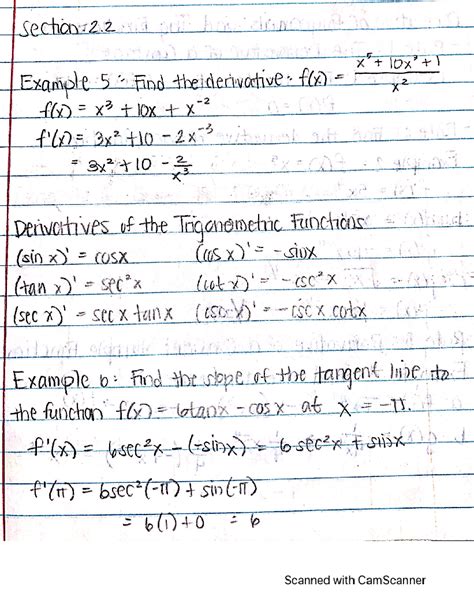 Section 2.2
Example 5: Find the derivative: f(x) = (x⁵ + 10x³ + 1)/x²
f(x) = x³ + 10x + x⁻²
f'(x) = 3x² + 10 - 2x⁻³
= 3x² + 10 - 2/x³
Derivatives of the Trigonometric Functions
(sin x)' = cosx (cos x)' = - sinx
(tan x)' = sec²x (cot x)' = - csc²x
(sec x)' = sec x tanx (csc x)' = - csc x cotx
Example 6: Find the slope of the tangent line to
the function f(x) = 6tanx - cos x at x = -π.
f'(x) = 6sec²x - (-sinx) = 6sec²x + sinx
f'(π) = 6sec²(-π) + sin(-π)
= 6(1) + 0 = 6
Scanned with CamScanner